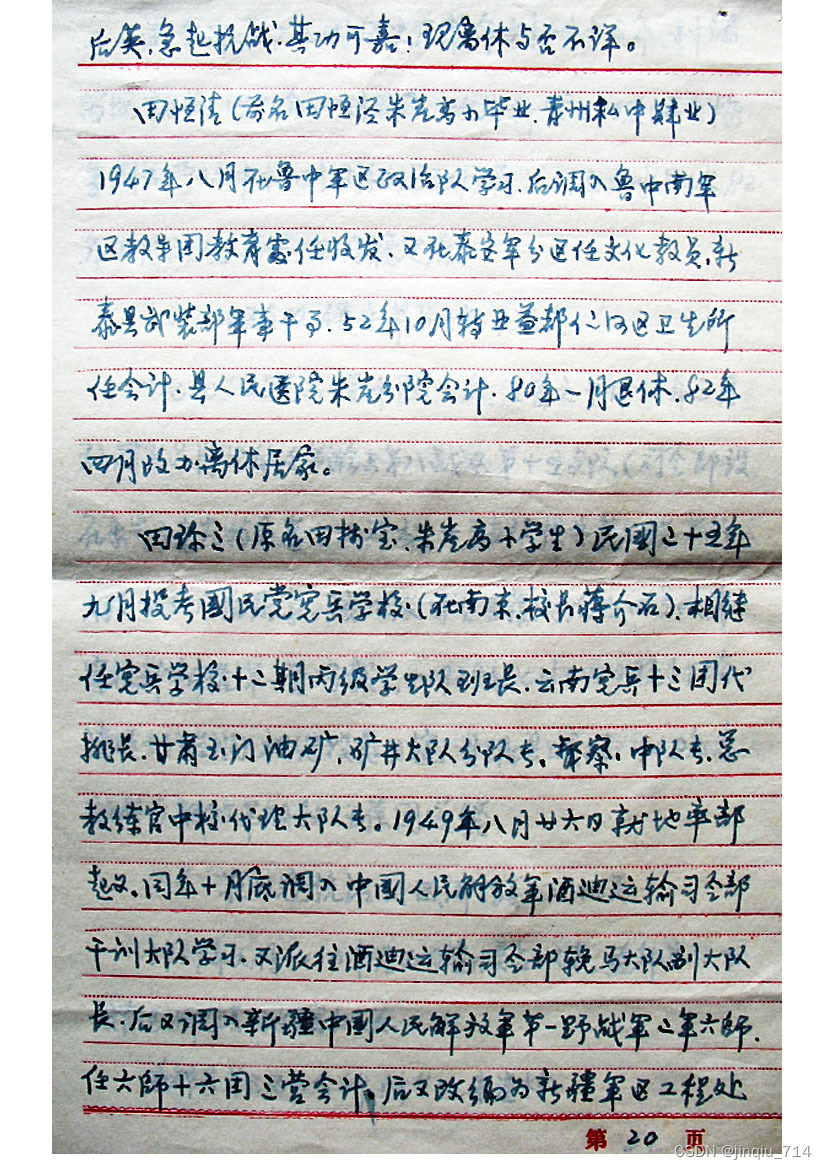 后英.急起抗战.其功可嘉!现离休与否不详。
田恒清(前名田恒泾朱崖高小毕业.青州私中肄业)
1947年八月在鲁中军区政治队学习.后调入鲁中南军
区教导团教育处任收发.又在泰安军分区任文化教员.新
泰县武装部军事干事.52年10月转业益都仁河区卫生所
任会计.县人民医院朱崖分院会计.80年一月退休.82年
四月改为离休居家。
田珍三(原名田树宝.朱崖高小学生)民國二十五年
九月投考國民党宪兵学校(在南京.校长蒋介石).相继
任宪兵学校十二期丙级学生队班长.云南宪兵十三团代
排长.甘肃玉门油矿.矿井大队分队长.督察.中队长.总
教练官中校代理大队长。1949年八月廿六日就地率部
起义.同年十月底调入中國人民解放军酒迪运输司令部
干训大队学习.又派往酒迪运输司令部輓马大队副大队
长.后又调入新疆中國人民解放军第一野战军二军六师.
任六師十六团三营会计。后又改编为新疆军区工程处
第 20 页
CSDN @jinqiu_714